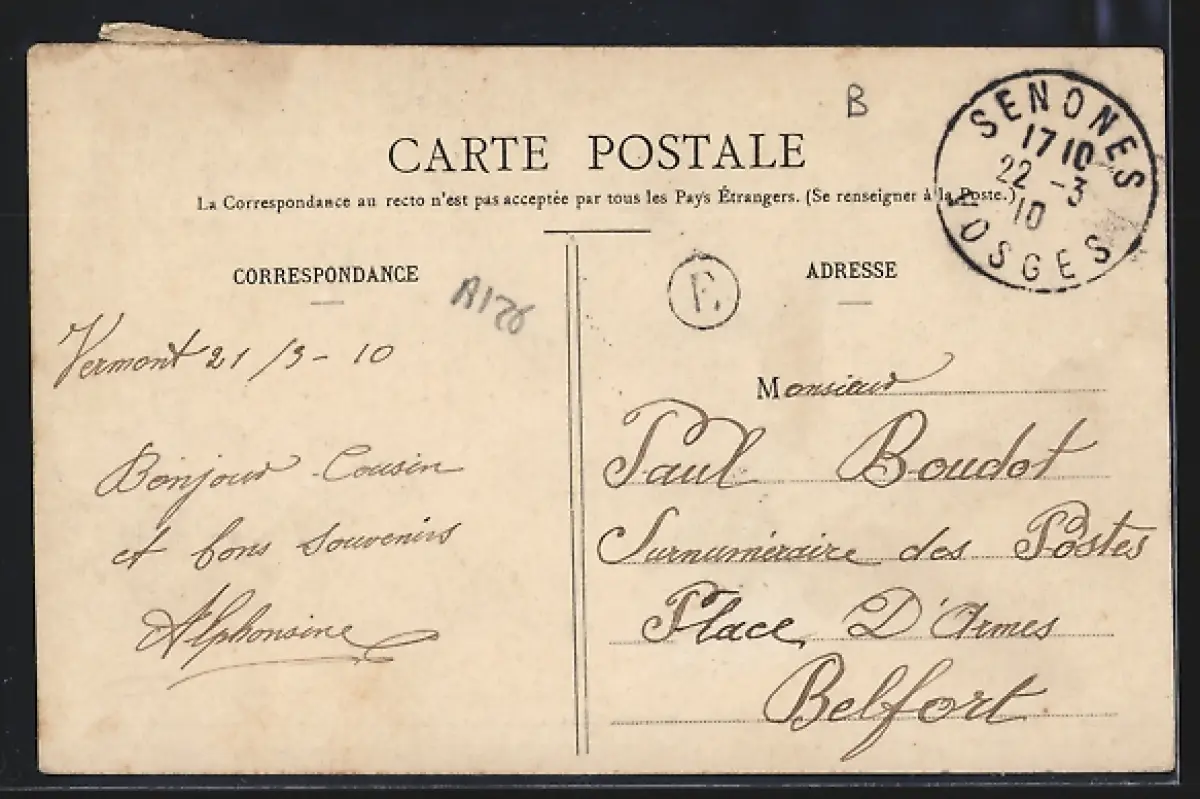 B
CARTE POSTALE
La Correspondance au recto n'est pas acceptée par tous les Pays Étrangers. (Se renseigner à la Poste.)
SENONES
17 10
22 -3
10
VOSGES
CORRESPONDANCE
A126
Vermont 21/3-10
Bonjour Cousin
et bons souvenirs
Alphonsine
E.
ADRESSE
Monsieur
Paul Boudot
Surnuméraire des Postes
Place D'Armes
Belfort